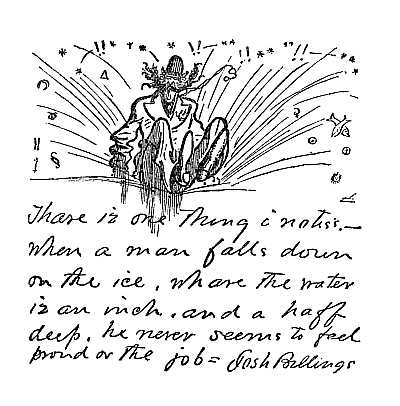 Thare iz one thing i notiss.—
when a man falls down
on the ice, whare the water
iz an inch. and a haff
deep. he never seems to feel
proud ov the job = Josh Billings